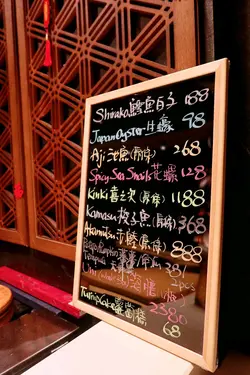 Shirako 鱈魚白子 188
Japan Oyster 生蠔 98
Aji 池魚 (原條) 268
Spicy Sea Snails 花螺 128
Kinki 喜之次 (原條) 1188
Kamasu 梭子魚 (原條) 368
Akamutsu 赤鯥 (原條) 888
2pcs
2380
Turnip Cake 蘿蔔糕 68